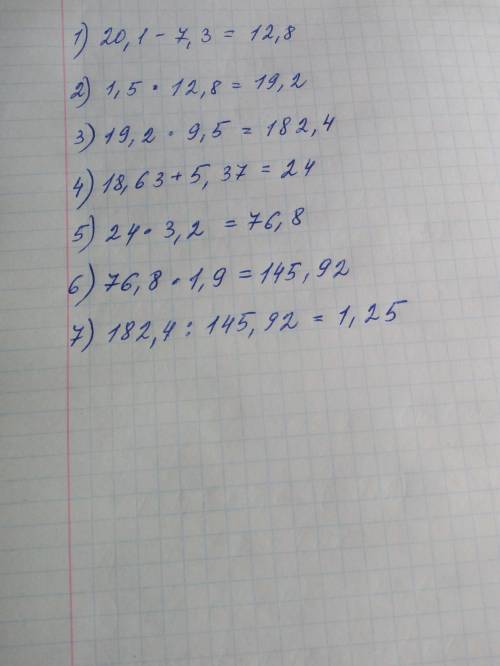 1) 20,1 - 7,3 = 12,8
2) 1,5 · 12,8 = 19,2
3) 19,2 · 9,5 = 182,4
4) 18,63 + 5,37 = 24
5) 24 · 3,2 = 76,8
6) 76,8 · 1,9 = 145,92
7) 182,4 : 145,92 = 1,25